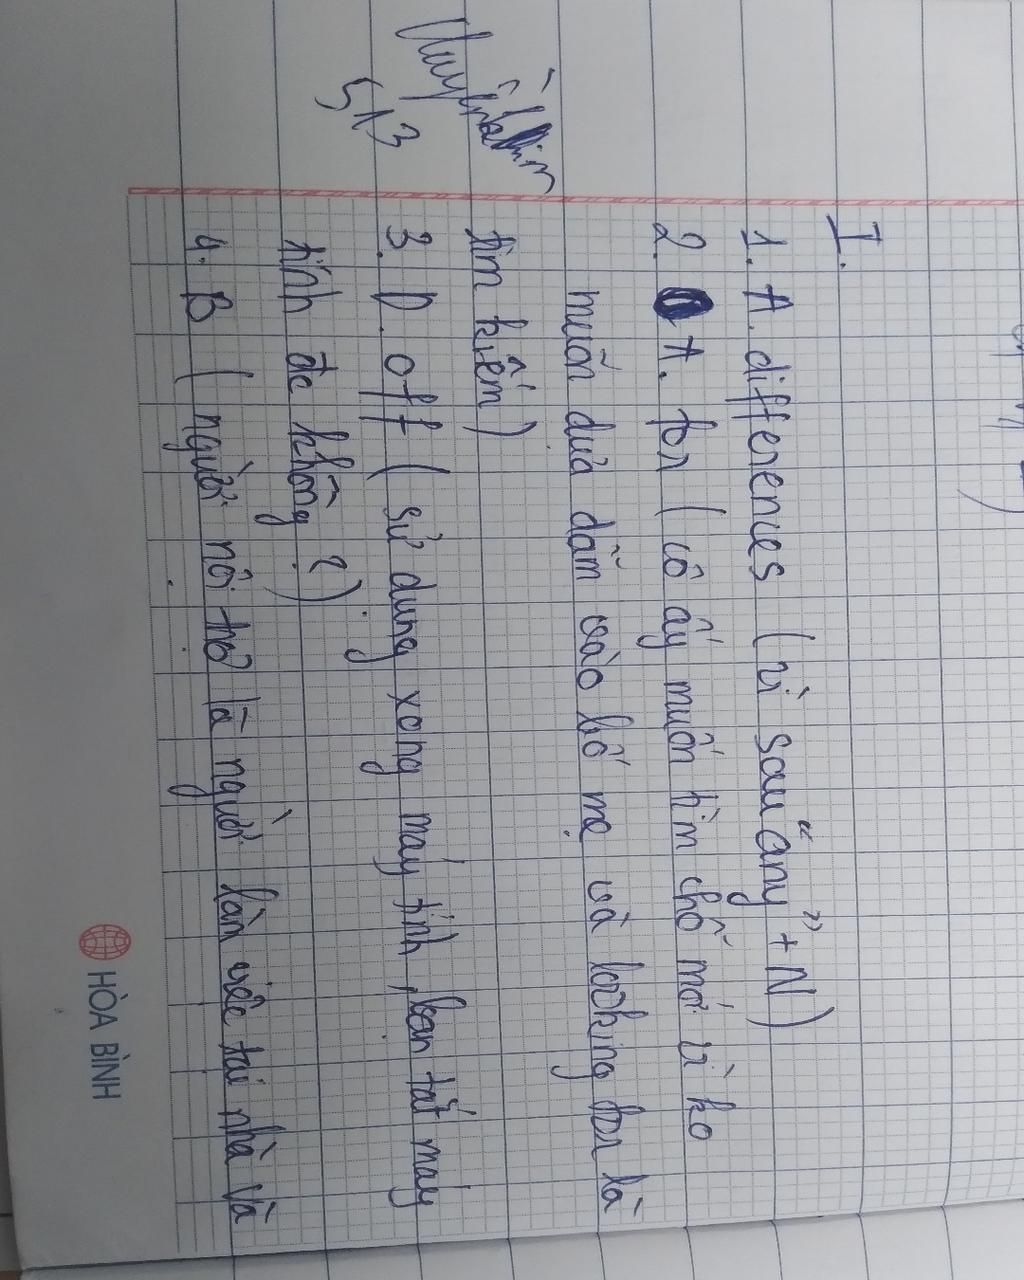 I.
1. A. differences (vì sau "any" + N)
2. A. for (cô ấy muốn tìm chỗ mới vì ko
muốn dưạ dẫm vào bố mẹ và looking for là
tìm kiếm)
3. D. off (sử dụng xong máy tính, bạn tắt máy
tính đc không ?).
4. B (người nội trợ là người làm việc tại nhà và
513
HÒA BÌNH